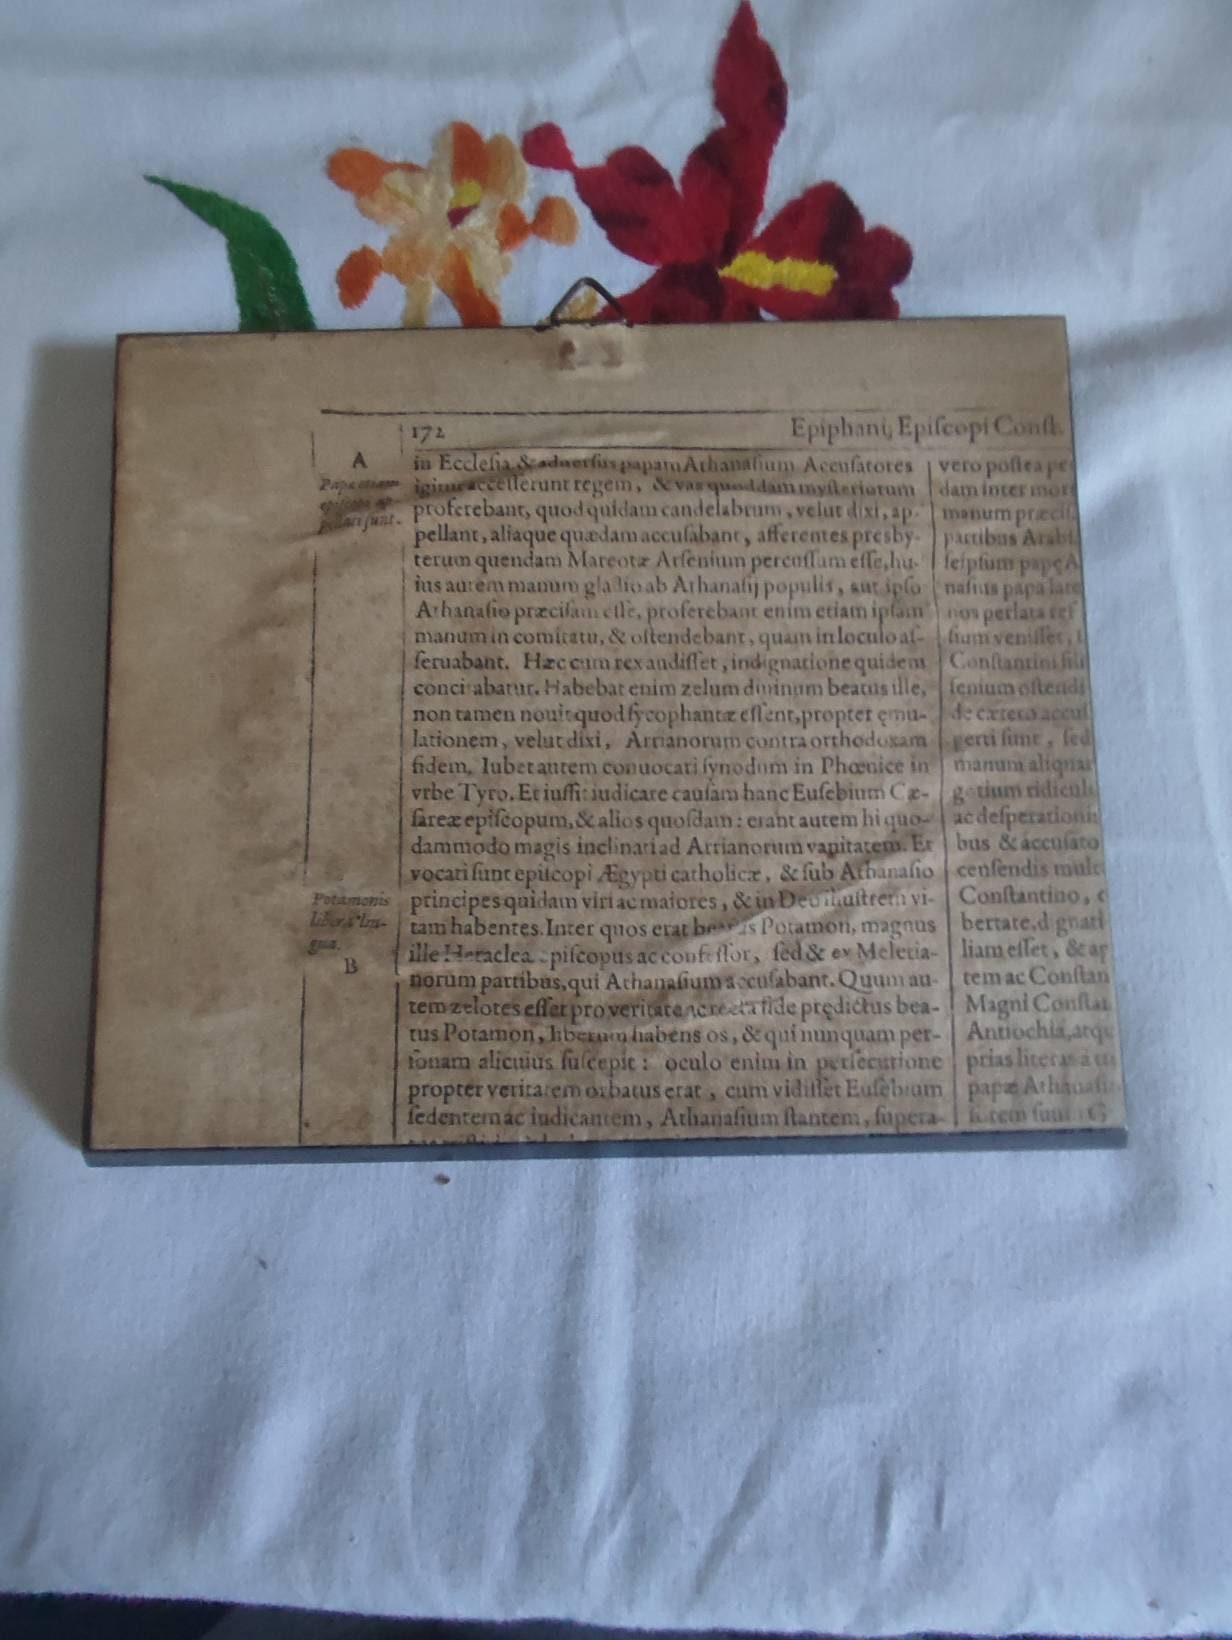 172
Epiphani, Epiſcopi Conſt.
A
Papa etiam
epiſcopi ap-
pellati ſunt.
in Eccleſia, & aduerſus papam Athanaſium Accuſatores
igitur acceſſerunt regem, & vas quoddam myſteriorum
proferebant, quod quidam candelabrum, velut dixi, ap-
pellant, aliaque quædam accuſabant, afferentes presby-
terum quendam Mareotæ Arſenium percuſſum eſſe, hu-
ius autem manum gladio ab Athanaſij populis, aut ipſo
Athanaſio præciſam eſſe, proferebant enim etiam ipſam
manum in comitatu, & oſtendebant, quam in loculo aſ-
ſeruabant. Hæc cum rex audiſſet, indignatione quidem
concitabatur. Habebat enim zelum diuinum beatus ille,
non tamen nouit quod ſycophantæ eſſent, propter ęmu-
lationem, velut dixi, Arrianorum contra orthodoxam
fidem. Iubet autem conuocari ſynodum in Phœnice in
vrbe Tyro. Et iuſſit iudicare cauſam hanc Euſebium Cæ-
ſareæ epiſcopum, & alios quoſdam: erant autem hi quo-
dammodo magis inclinati ad Arrianorum vanitatem. Et
vocati ſunt epiſcopi Ægypti catholicæ, & ſub Athanaſio
principes quidam viri ac maiores, & in Deo illuſtrem vi-
tam habentes. Inter quos erat beatus Potamon, magnus
ille Heraclea epiſcopus ac confeſſor, ſed & ex Meletia-
norum partibus, qui Athanaſium accuſabant. Quum au-
tem zelotes eſſet pro veritate ac recta fide prędictus bea-
tus Potamon, liberum habens os, & qui nunquam per-
ſonam alicuius ſuſcepit: oculo enim in perſecutione
propter veritatem orbatus erat, cum vidiſſet Euſebium
ſedentem ac iudicantem, Athanaſium ſtantem, ſupera-
Potamonis
libera lin-
gua.
B
vero poſtea pe
dam inter mor
manum præciſ
partibus Arabi
ſeipſum papę A
naſius papa late
nos perlata reſ
ſium veniſſet,
Conſtantini fili
ſenium oſtendi
de cætero accuſ
gerti ſunt, ſed
manum aliquam
gotium ridicul
ac deſperationis
bus & accuſato
cenſendis mult
Conſtantino, e
bertate, dignati
liam eſſet, & ap
tem ac Conſtan
Magni Conſtan
Antiochia, atqu
prias literas à
papæ Athanaſi